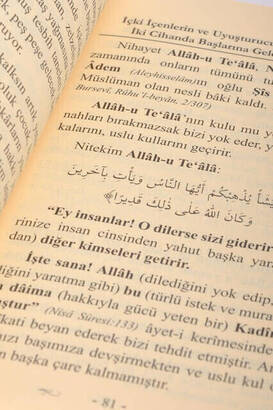 İçki İçenlerin ve Uyuşturucu
İki Cihanda Başlarına Gel
Nihayet Allâh-u Te‘âlâ, N
zamanında onların tümünü t
Âdem (Aleyhisselâm)ın oğlu Şîs
Müslüman olan nesli bâkî kaldı.
Bursevî, Rûhu'l-beyân, 2/307)
Allâh-u Te‘âlâ'nın kulu mu y
nahları bırakmazsak bizi yok eder, y
kalarını, uslu kullarını geçirir.
Nitekim Allâh-u Te‘âlâ:
يَشَأْ يُذْهِبْكُمْ أَيُّهَا النَّاسُ وَيَأْتِ بِآخَرِينَ
وَكَانَ اللّٰهُ عَلٰى ذٰلِكَ قَدِيرًا
"Ey insanlar! O dilerse sizi giderir
rinize insan cinsinden yahut başka yara
dan) diğer kimseleri getirir.
İşte sana! Allâh (dilediğini yok edip,
ediğini yaratma gibi) bu (türlü istek ve murat
n dâima (hakkıyla gücü yeten bir) Kadîr
uştur" (Nisâ Sûresi:133) âyet-i kerîmesinde
kati beyan ederek bizi tehdit etmiştir. Ar
ızı başımıza devşirmekten ve uslu kul ol
en başka çare kalmamıştır.
81